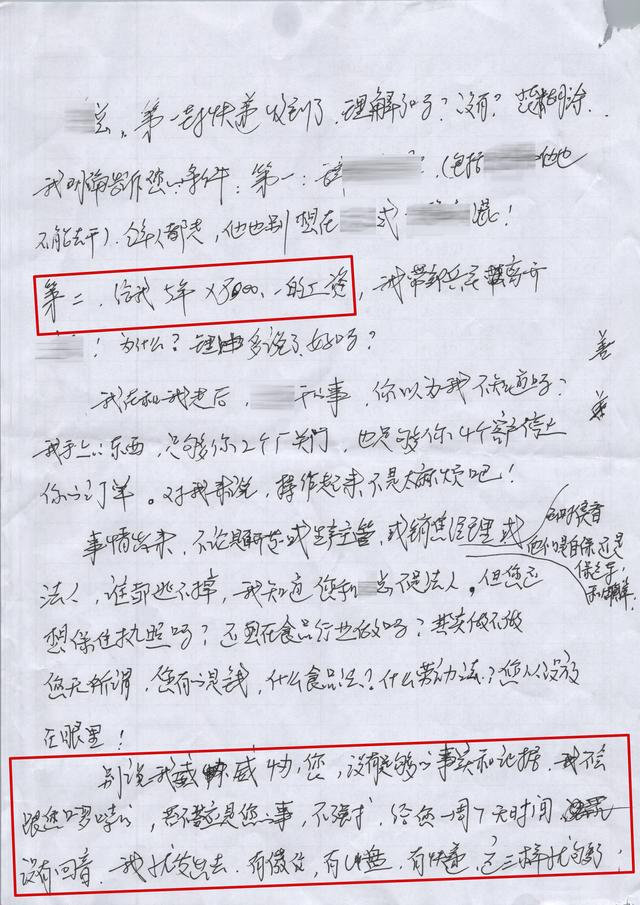 总, 第一封快递收到了. 理解了吗? 没有? 装糊涂.
我明确告诉您条件: 第一: 请 (包括 他也
不能去干). 全部人都走, 他也别想在 或 混!
第二、给我5年 X 的工资, 我带部兵离开
! 为什么? 理由多说了好吗?
我在和我走后, 干的事, 你以为我不知道吗?
我手上的东西, 足够你2个厂关门, 也足够你4个客户停止
你的订单。对我来说, 操作起来不是太麻烦吧!
事情出来, 不论是研发或生产主管, 或销售经理或
法人, 谁都逃不掉, 我知道您和 总不是法人, 但您还
想保住执照吗? 还想在食品行业做吗? 其实做不做
您无所谓, 您有的是钱, 什么食品法? 什么劳动法? 您从没放
在眼里!
别说我威 威胁您, 没有足够的事实和证据. 我不会
跟您啰嗦的, 答不答应是您的事, 不强求, 给您一周7天时间
没有回音. 我就发出去. 有微信, 有U盘, 有快递, 这三样就够了
善
他们是自保还是
保老子,